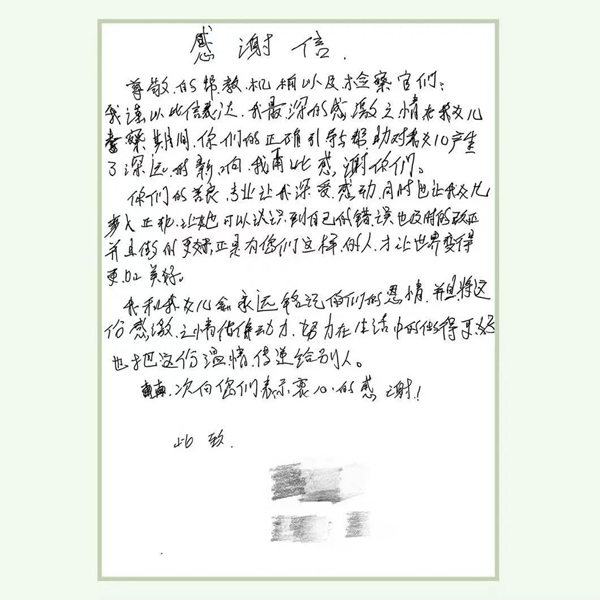 感谢信.
尊敬的帮教机构以及检察官们:
我谨以此信表达我最深的感激之情在我女儿
考察期间,你们的正确引导与帮助对我女儿产生
了深远的影响,我再此感谢你们。
你们的善良,专业让我深受感动,同时也让我女儿
步入正轨,让她可以认识到自己的错误也及时的改正
并且做的更好,正是有您们这样的人,才让世界变得
更加美好。
我和我女儿会永远铭记你们的恩情,并且将这
份感激之情化作动力,努力在生活中的做得更好
也把这份温情传递给别人。
再次向您们表示衷心的感谢!
此致